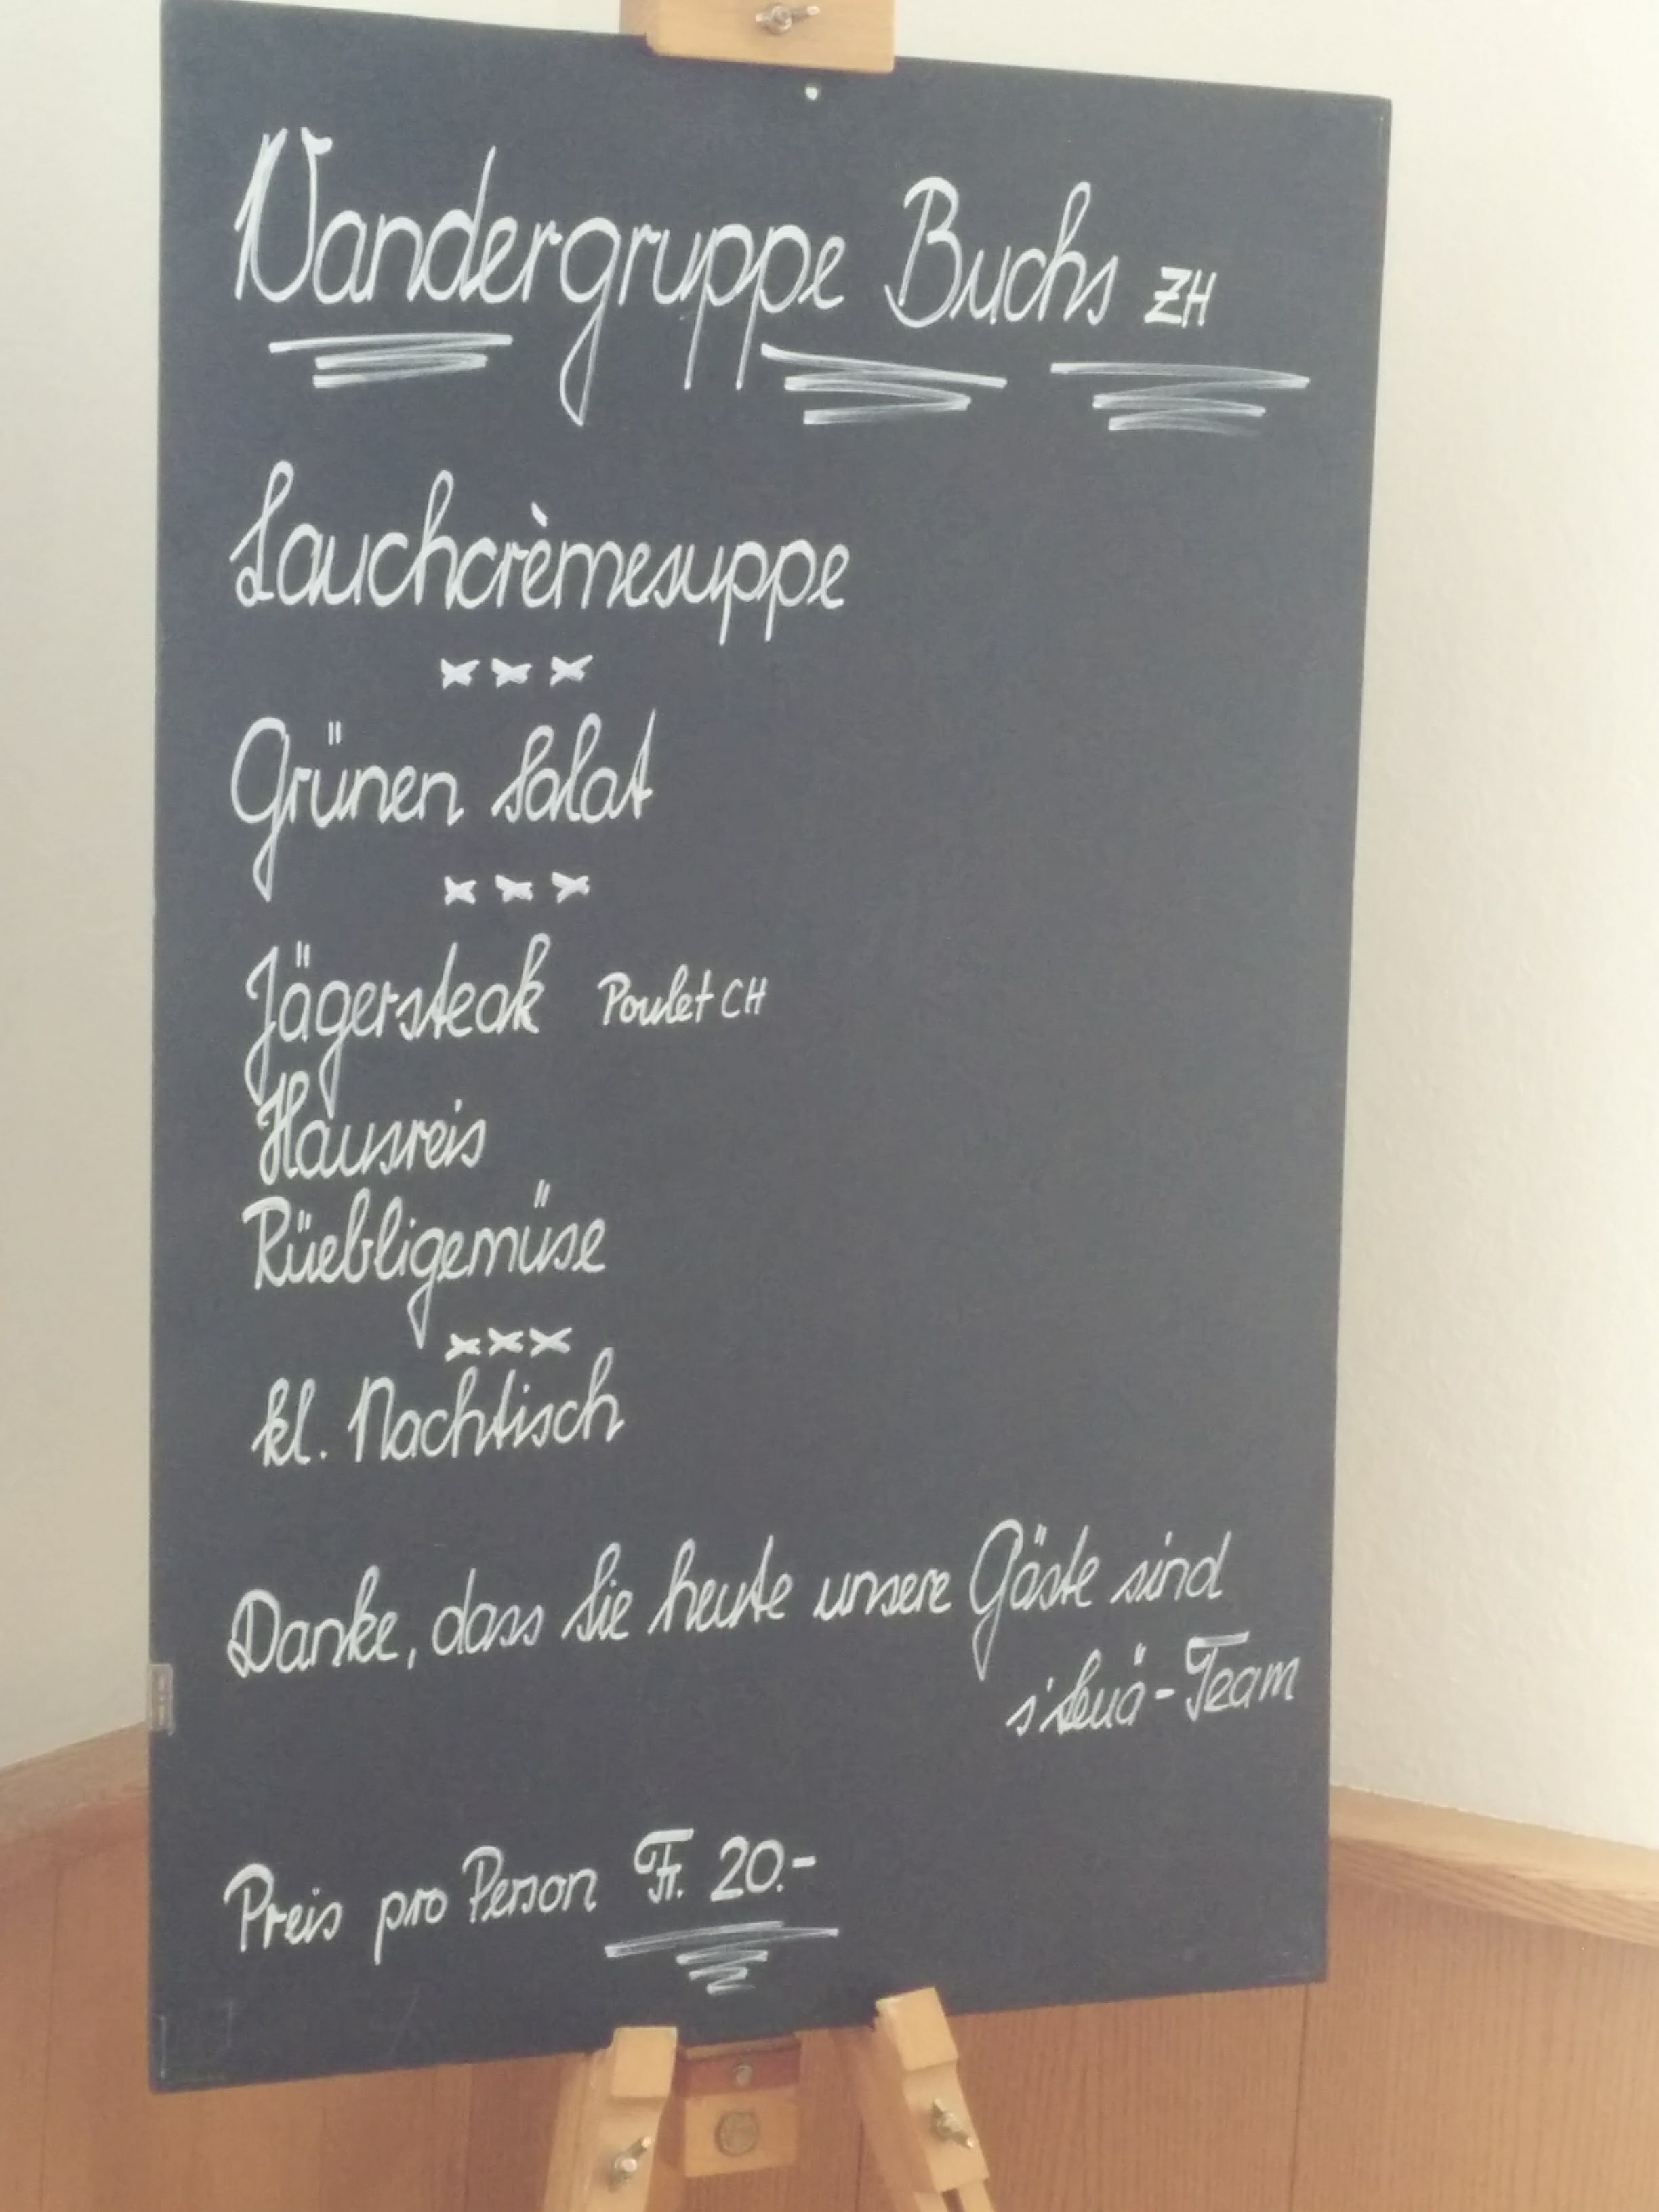 Wandergruppe Buchs ZH
Lauchcrèmesuppe
x x x
Grünen Salat
x x x
Jägersteak Poulet CH
Hausreis
Rüebligemüse
x x x
kl. Nachtisch
Danke, dass Sie heute unsere Gäste sind
-Team
Preis pro Person Fr. 20.-